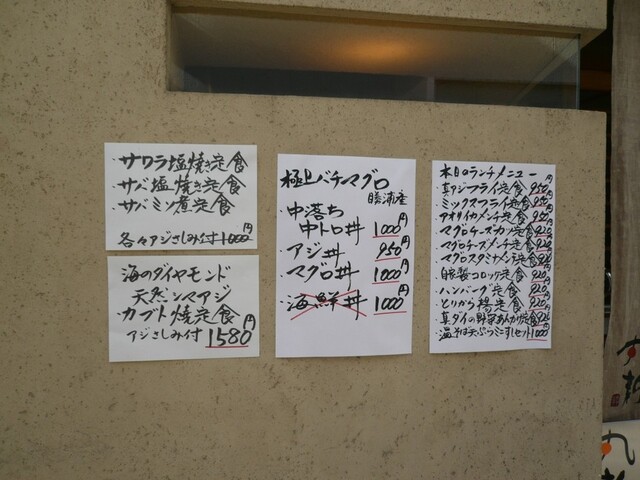 ・サワラ塩焼き定食
・サバ塩焼き定食
・サバミソ煮定食
各々アジさしみ付1000円
海のダイヤモンド
天然シマアジ
・カブト焼定食
アジさしみ付 1580円
極上バチマグロ
勝浦産
・中落ち
中トロ丼 1000円
・アジ丼 950円
・マグロ丼 1000円
・海鮮丼 1000円
本日のランチメニュー
・真アジフライ定食 950円
・ミックスフライ定食 950円
・アオリイカメンチ定食 950円
・マグロチーズカツ定食 920
・マグロチーズメンチ定食 920
・マグロスタミナメンチ定食 920
・自家製コロッケ定食 920円
・ハンバーグ定食 920円
・とりから揚定食 920円
・真ダイの野菜あんかけ定食 920
・温そば天ぷらミニすしセット1000円